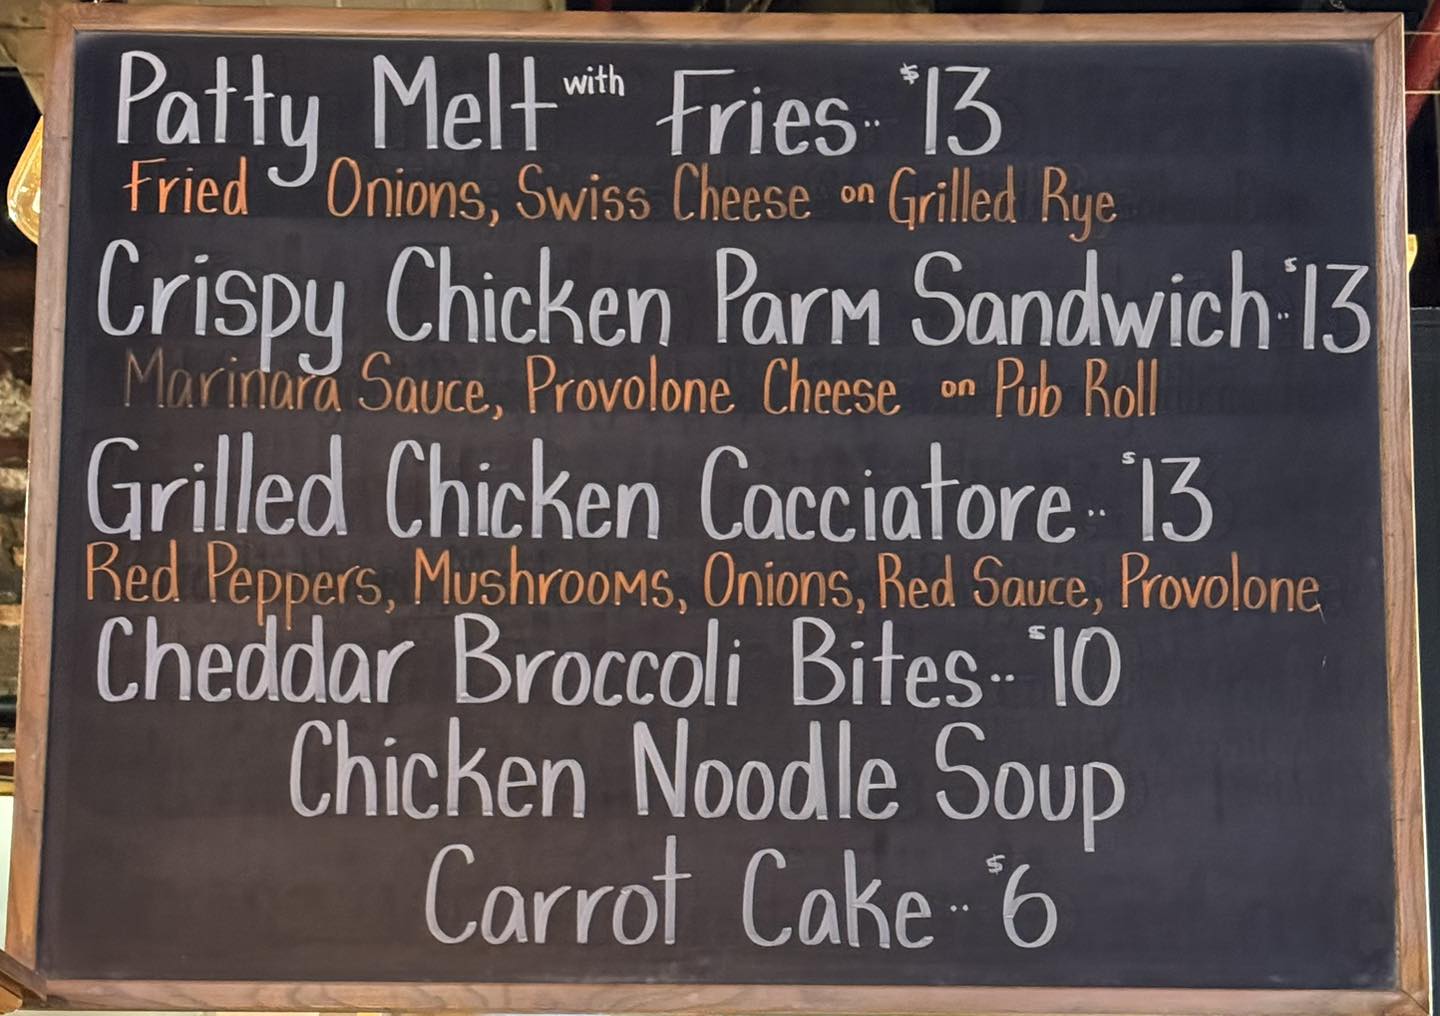 Patty Melt with Fries.. $13
Fried Onions, Swiss Cheese on Grilled Rye
Crispy Chicken Parm Sandwich.. $13
Marinara Sauce, Provolone Cheese on Pub Roll
Grilled Chicken Cacciatore.. $13
Red Peppers, Mushrooms, Onions, Red Sauce, Provolone
Cheddar Broccoli Bites.. $10
Chicken Noodle Soup
Carrot Cake.. $6